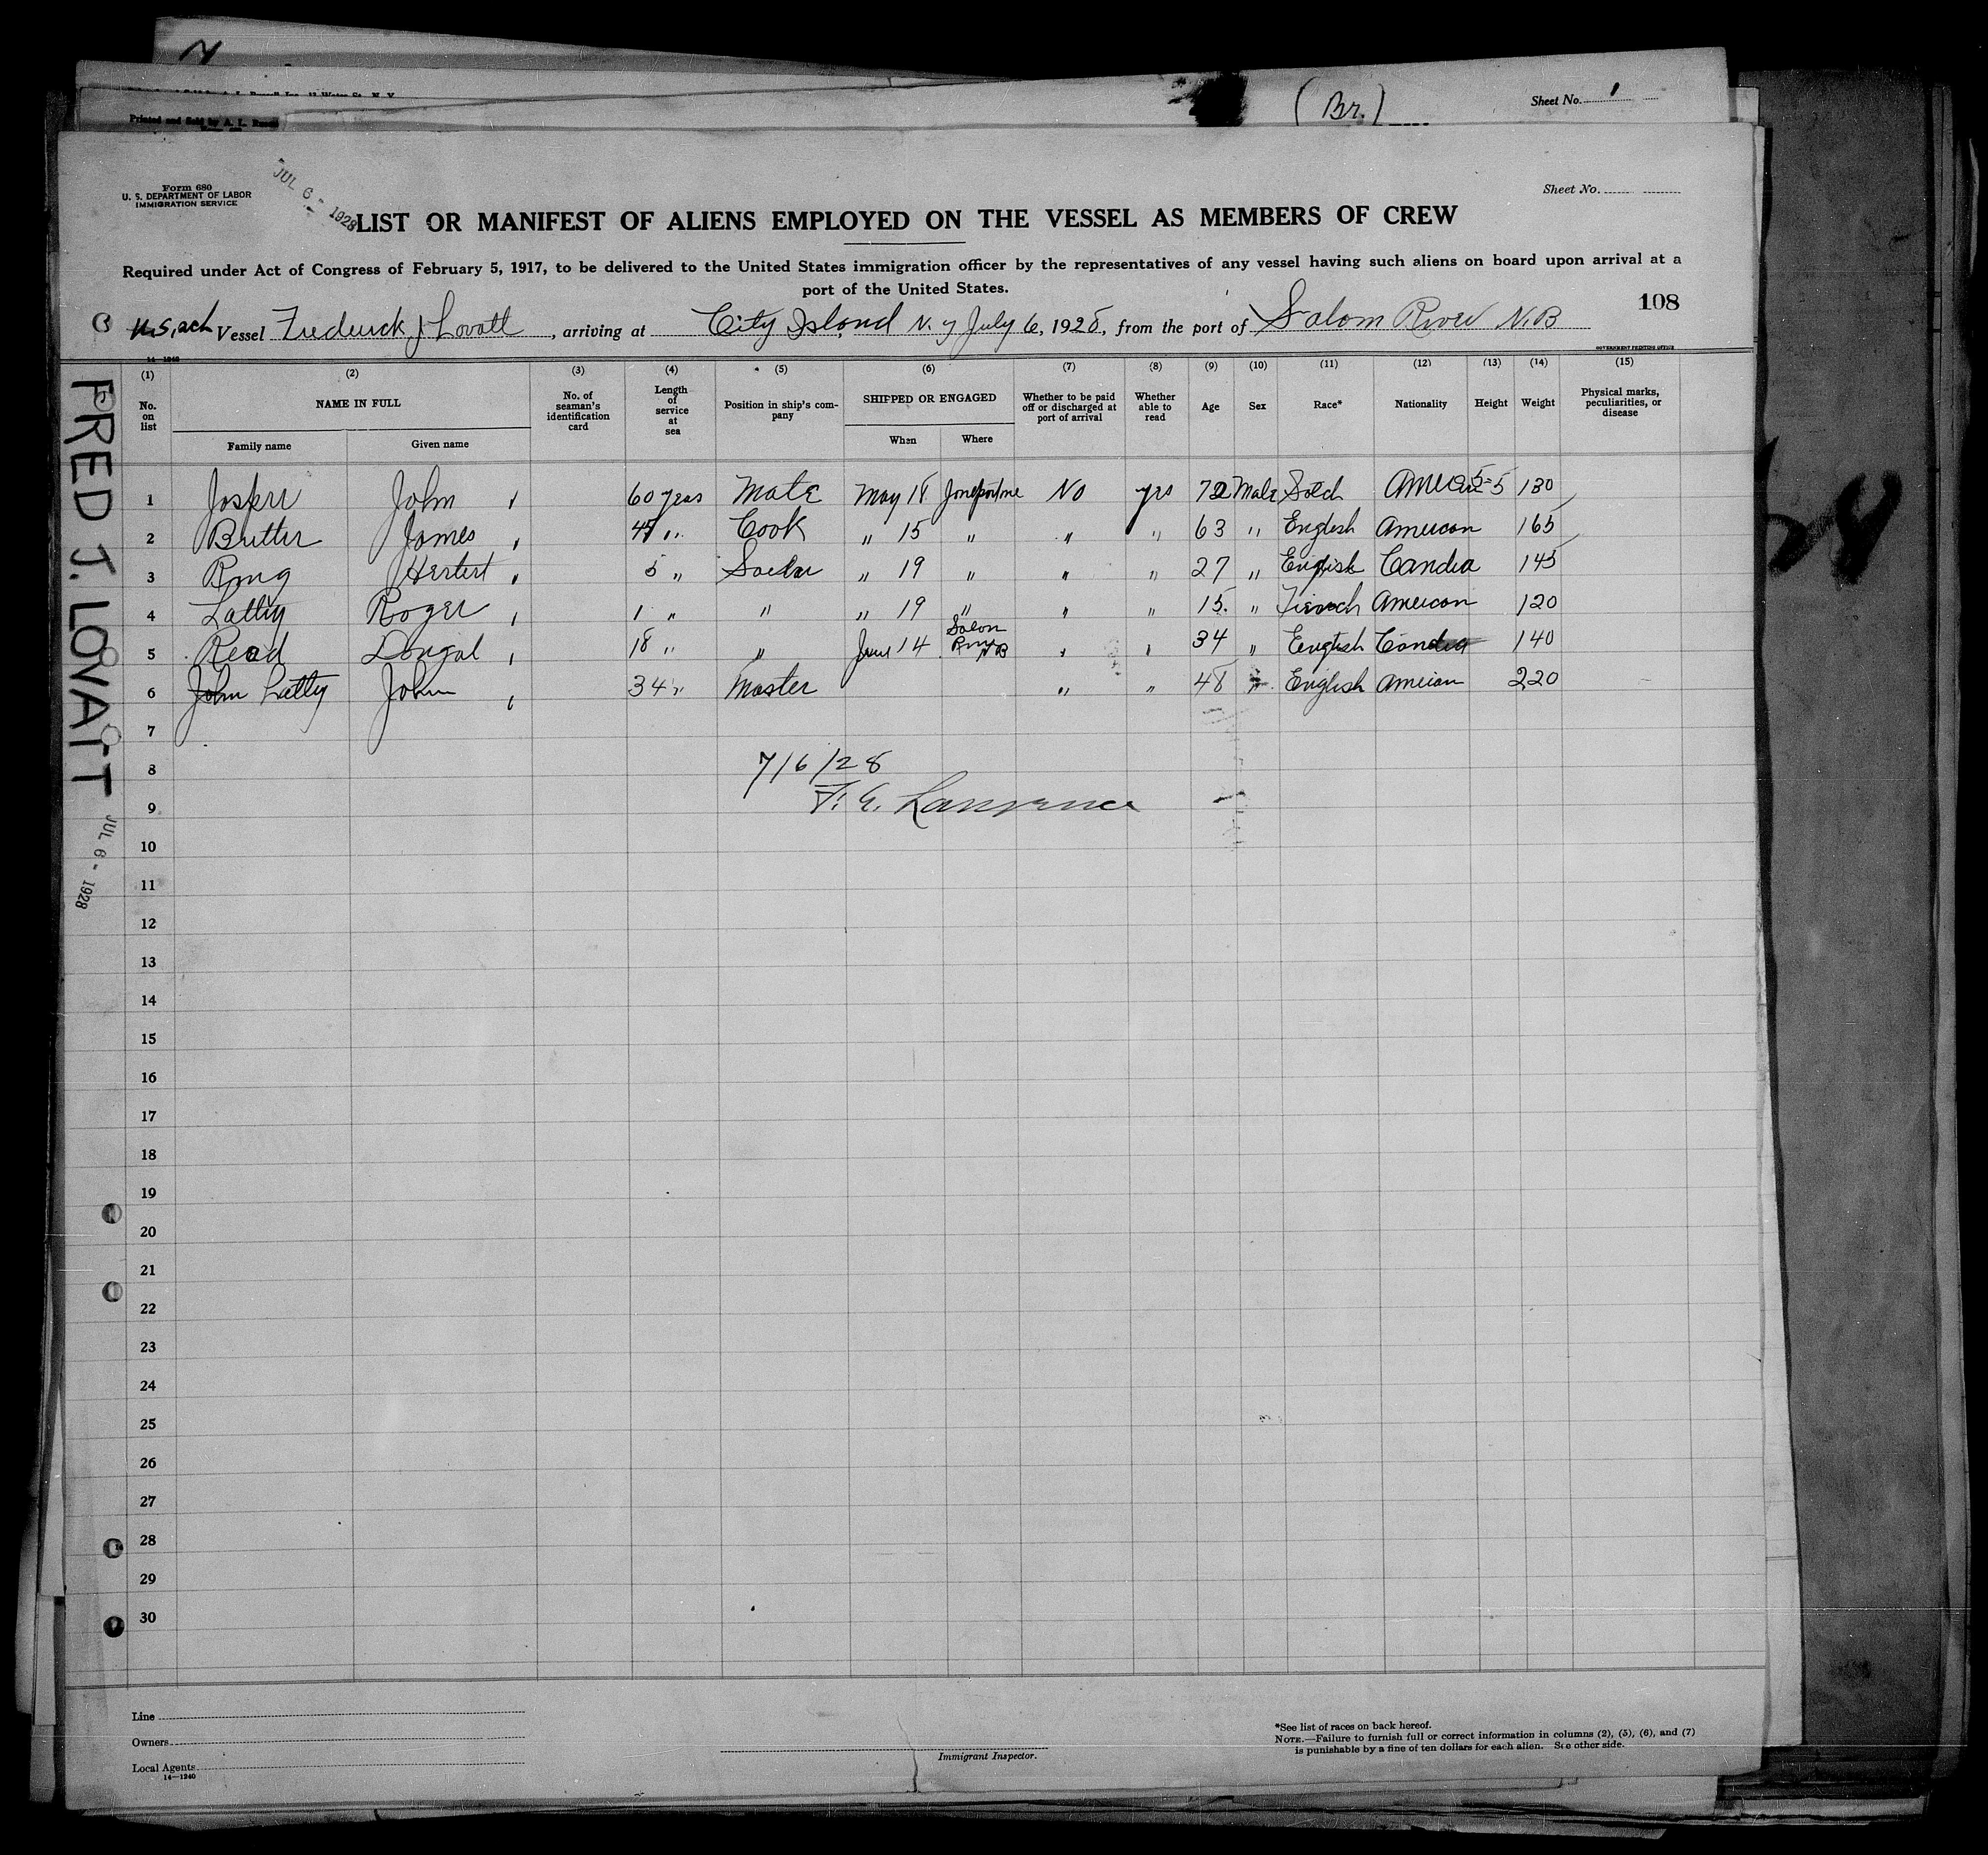 Printed and Sold by A. L. Russell
(Br.)
Sheet No. 1
Form 680
U. S. DEPARTMENT OF LABOR
IMMIGRATION SERVICE
JUL 6 - 1928
Sheet No.
LIST OR MANIFEST OF ALIENS EMPLOYED ON THE VESSEL AS MEMBERS OF CREW
Required under Act of Congress of February 5, 1917, to be delivered to the United States immigration officer by the representatives of any vessel having such aliens on board upon arrival at a
port of the United States.
108
U.S. sch Vessel Frederick J Lovatt, arriving at City Island N. y July 6, 1928, from the port of Salom River N.B
14—1240
GOVERNMENT PRINTING OFFICE
FRED J. LOVATT JUL 6 - 1928
(1) (2) (3) (4) (5) (6) (7) (8) (9) (10) (11) (12) (13) (14) (15)
No. on list
NAME IN FULL
Family name Given name
No. of seaman's identification card
Length of service at sea
Position in ship's company
SHIPPED OR ENGAGED
When Where
Whether to be paid off or discharged at port of arrival
Whether able to read
Age Sex Race* Nationality Height Weight
Physical marks, peculiarities, or disease
1 Josper John 60 years Mate May 18 Jonesport me No yes 72 Male Scotch 5-5 130
2 Butler James 45 " Cook " 15 " " " 63 " English American 165
3 Ring Herbert 5 " " 19 " " " 27 " English Candia 145
4 Latty Roger 1 " " " 19 " " " 15 " French American 120
5 Read Dougal 18 " " June 14 Salon River NB " " 34 " English Candia 140
6 John Latty John 34 " Master " " 48 " English American 220
7
8
7/6/28
9
F. E. Lawrence
10
11
12
13
14
15
16
17
18
19
20
21
22
23
24
25
26
27
28
29
30
Line
Owners
Local Agents
14—1240
Immigrant Inspector.
*See list of races on back hereof.
NOTE.—Failure to furnish full or correct information in columns (2), (5), (6), and (7)
is punishable by a fine of ten dollars for each alien. See other side.